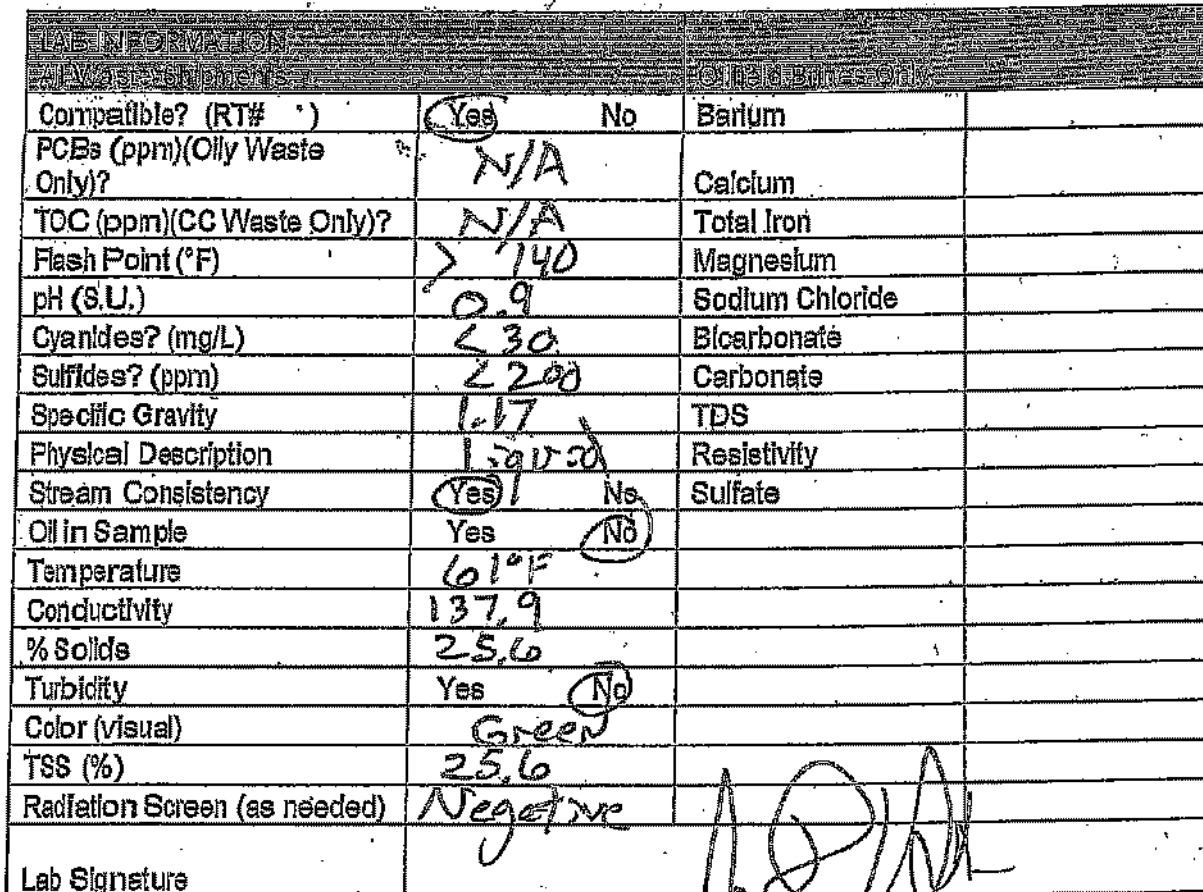 LAB INFORMATION
All Waste Shipments Oilfield Brines Only
Compatible? (RT# ) Yes No Barium
PCBs (ppm)(Oily Waste
Only)? N/A Calcium
TOC (ppm)(CC Waste Only)? N/A Total Iron
Flash Point (°F) > 140 Magnesium
pH (S.U.) 0.9 Sodium Chloride
Cyanides? (mg/L) <30 Bicarbonate
Sulfides? (ppm) <200 Carbonate
Specific Gravity 1.17 TDS
Physical Description Liquid Resistivity
Stream Consistency Yes No Sulfate
Oil in Sample Yes No
Temperature 61°F
Conductivity 137.9
% Solids 25.6
Turbidity Yes No
Color (visual) Green
TSS (%) 25.6
Radiation Screen (as needed) Negative
Lab Signature